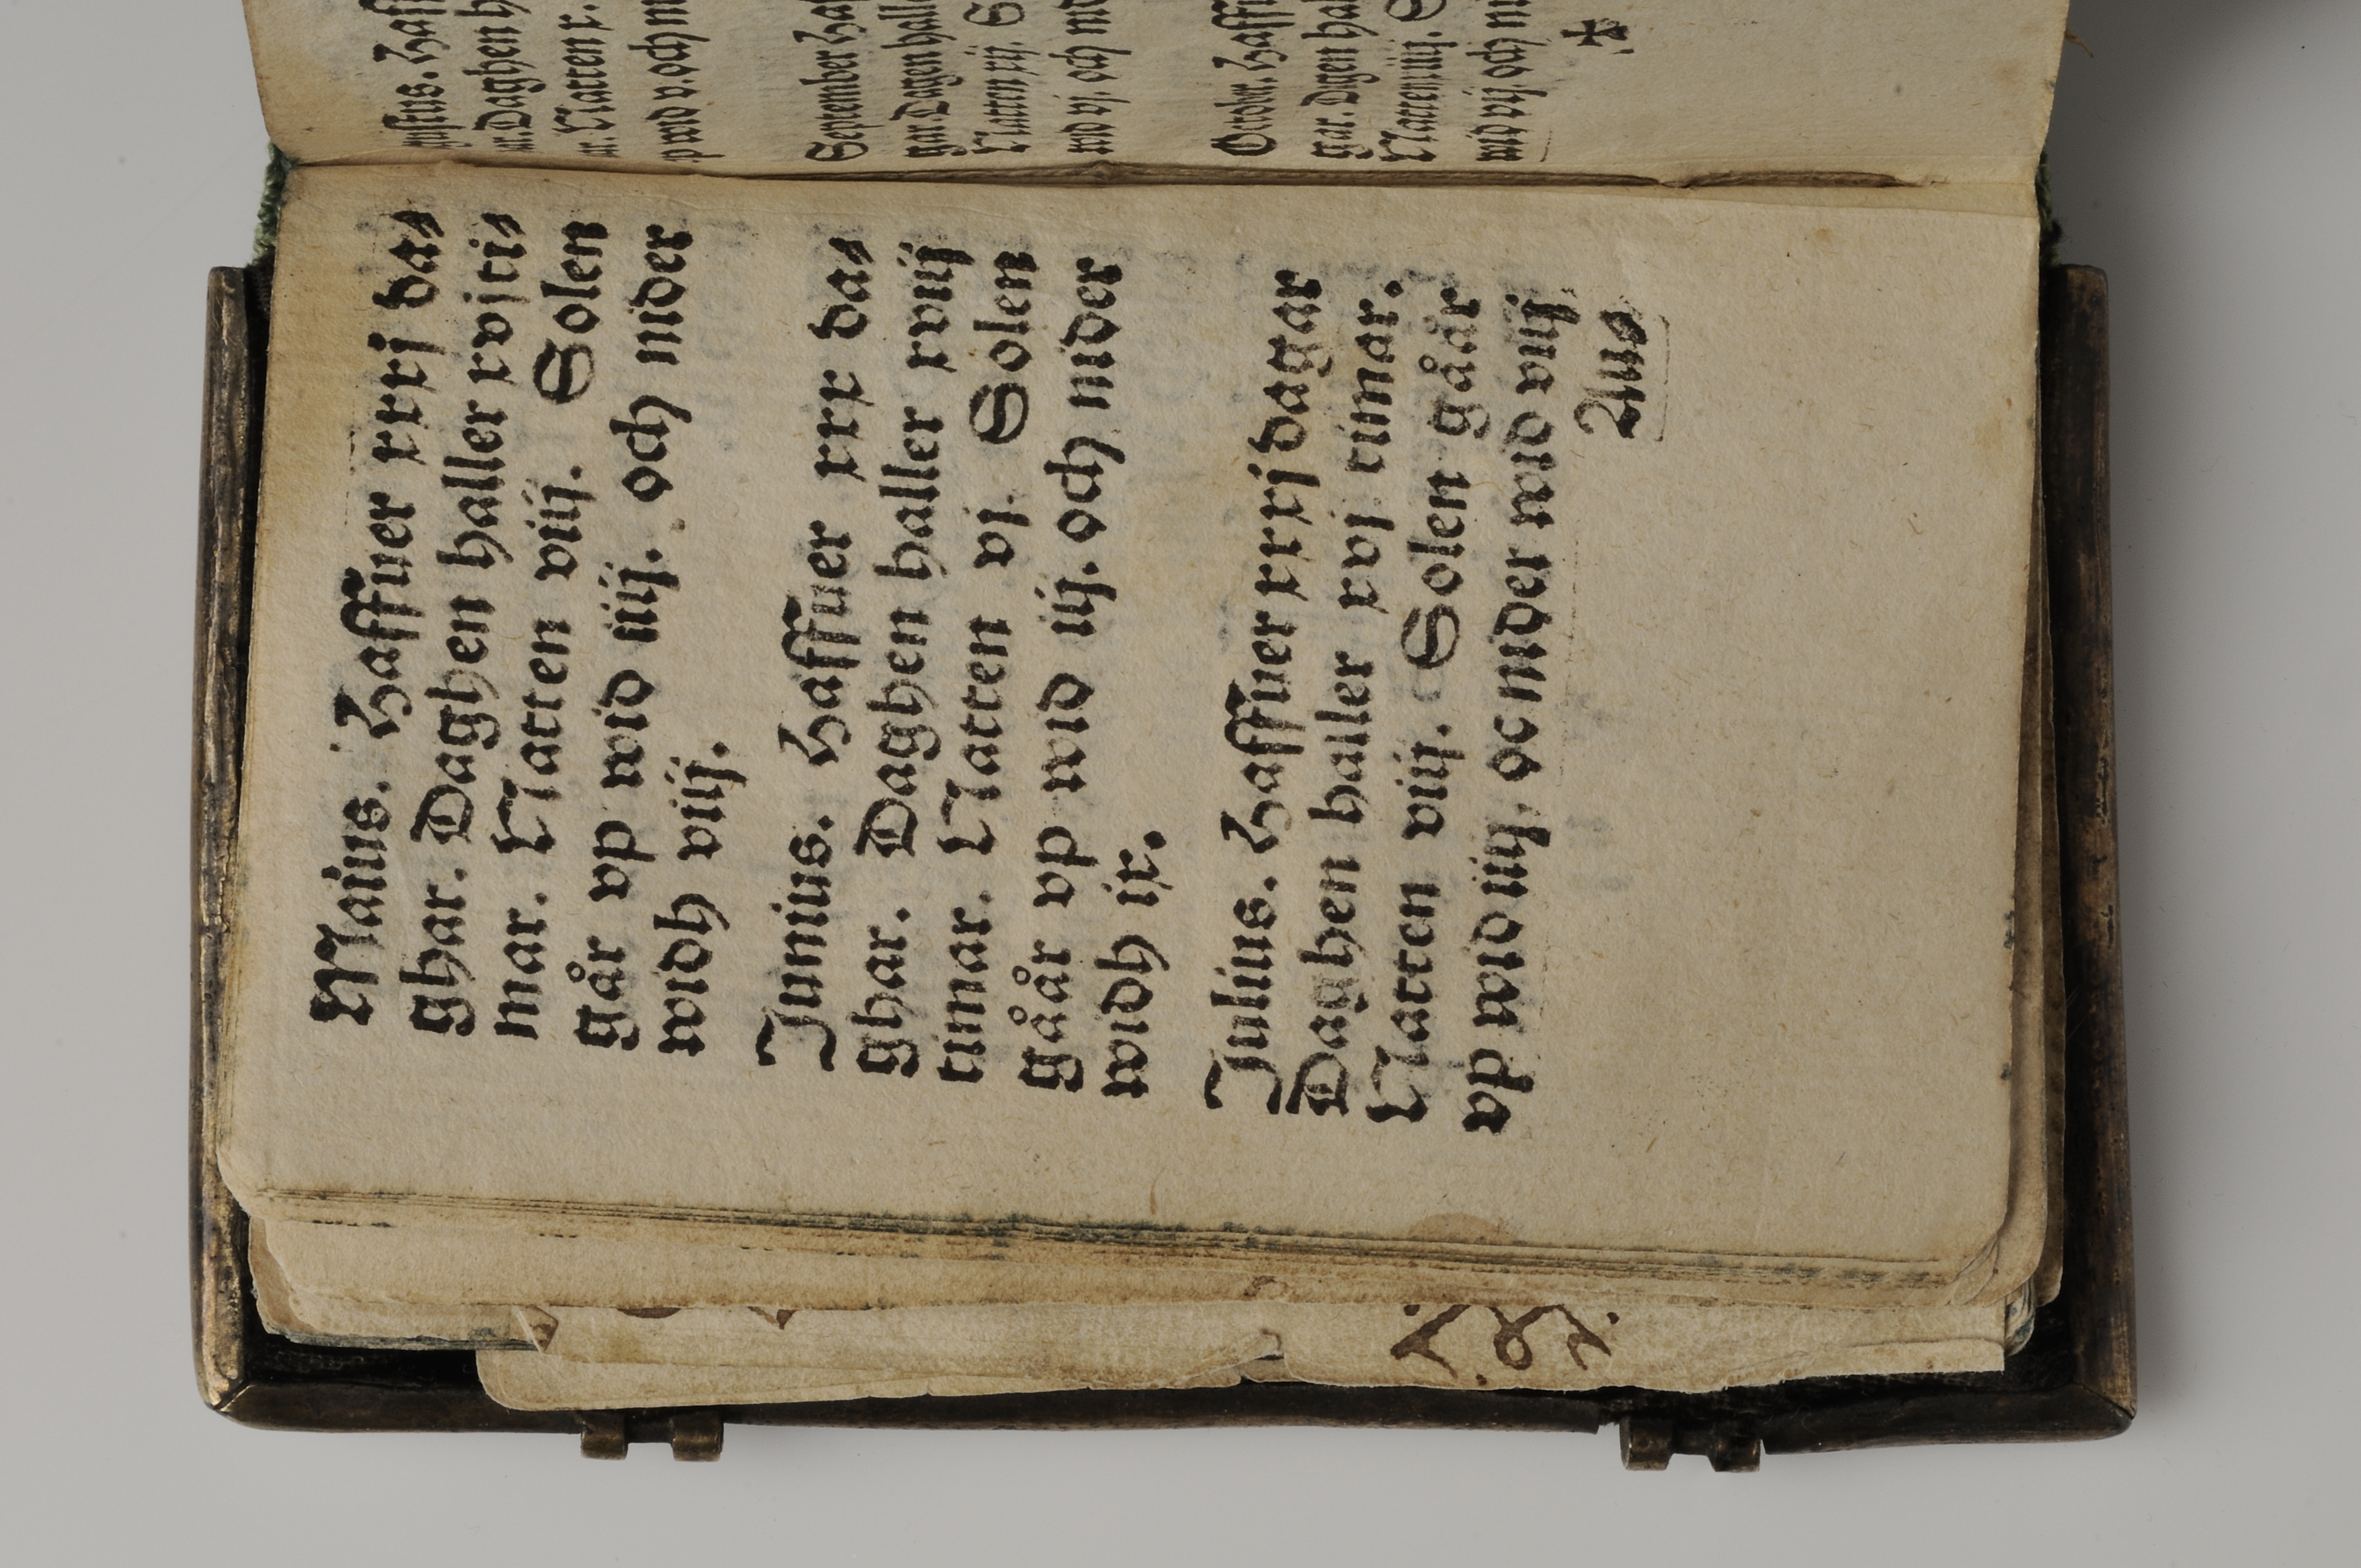 Maius. Haffuer xxxj da⸗
ghar. Daghen haller xvj ti⸗
mar. Natten viij. Solen
går vp wid iiij. och nider
widh viij.
Junius. Haffuer xxx da⸗
ghar. Daghen haller xviij
timar. Natten vj. Solen
gåår vp wid iij. och nider
widh ix.
Julius. Haffuer xxxj dagar
Daghen haller xvj timar.
Natten viij. Solen gåår
vp wid iiij. oc nider wid viij
Au⸗
gustus. Haff
ar. Daghen h
ar. Natten x.
p wid v. och
September. Haf
gar. Dagen hall
Natten xij. S
wid vj. och
October. Haffu
gar. Dagen hal
Natten iiij. S
wid vij. och